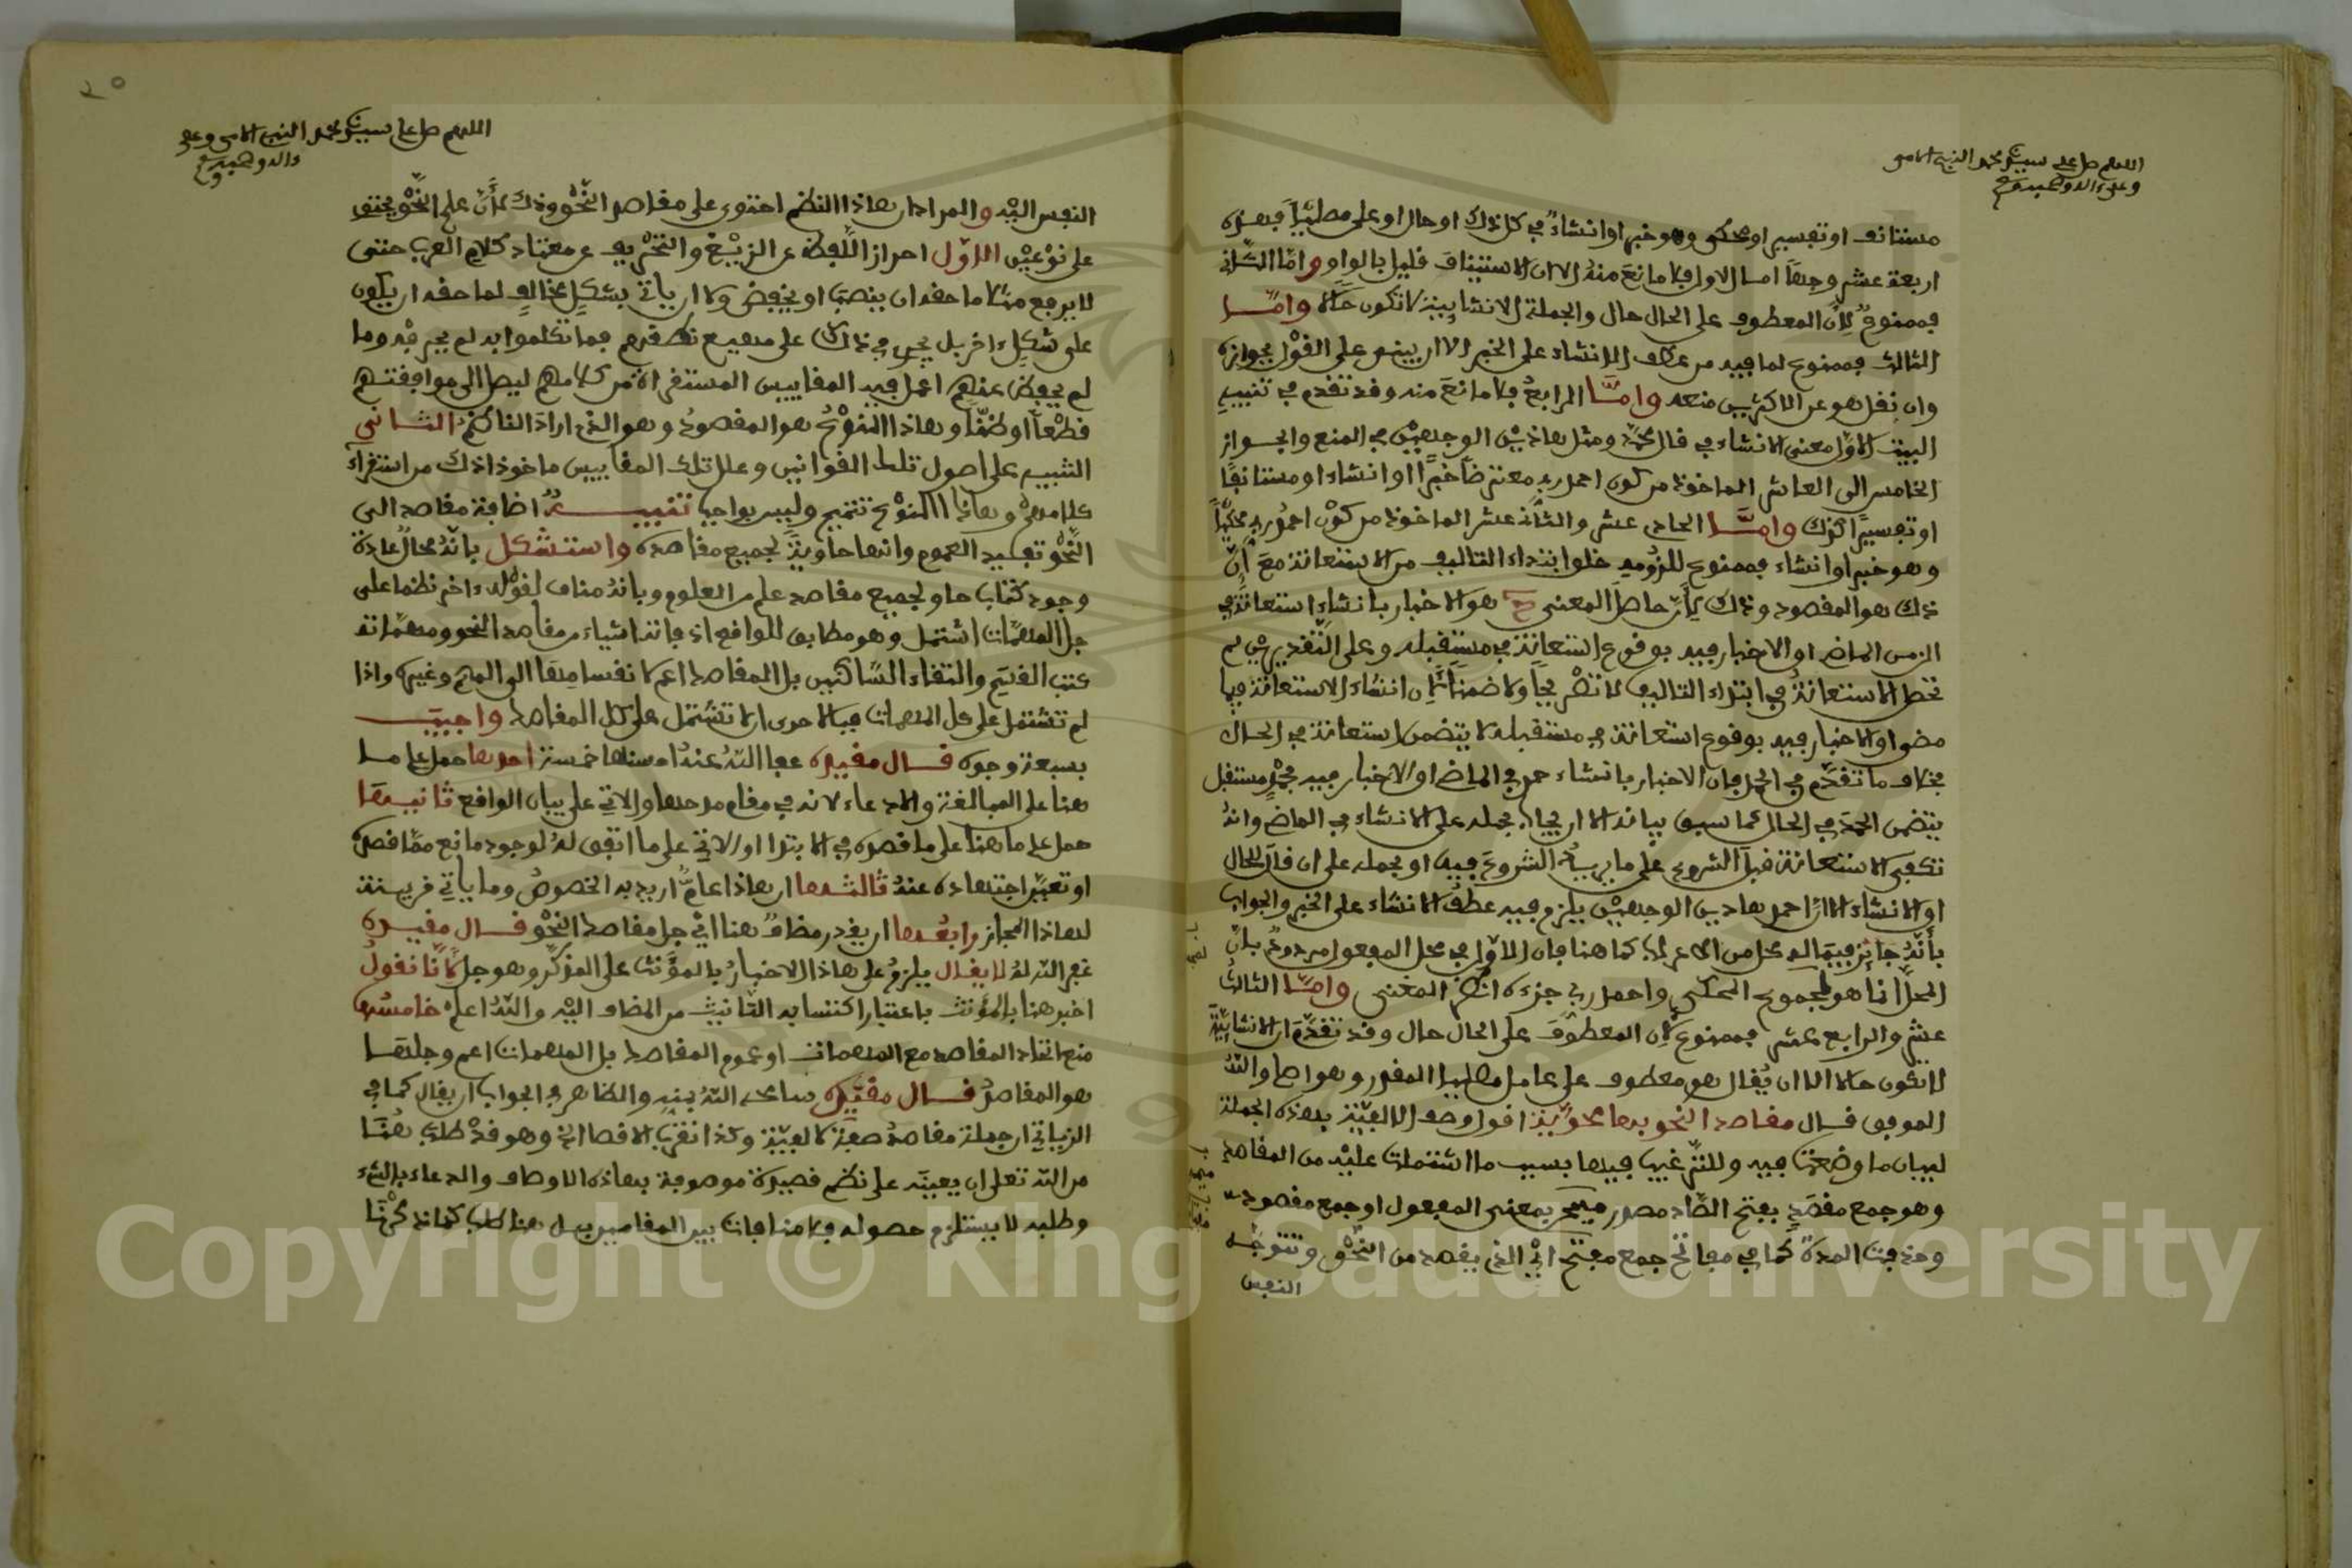 اللهم صل على سيدنا محمد النبي الامي
وعلى ءاله وصحبه وسلم
مستانف او تفسير او محكي وهو خبر او انشاء في كل ذلك او حال او على مصليا فهذه
اربعة عشر وجها اما الاول فلا مانع منه الا ان الاستيناف قليل بالواو واما الثاني
فممنوع لان المعطوف على الحال حال والجملة الانشاييية لا تكون حالا واما
الثالث فممنوع لما فيه من عطف الانشاء على الخبر الا ان يبنى على القول بجوازه
وان نقل هو عن الاكثرين منعه واما الرابع فلا مانع منه وقد تقدم في تنبيه
البيت الاول معنى الانشاء في قال محمد ومثل هاذين الوجهين في المنع والجواز
الخامس الى العاشر الماخوذة من كون احمد ربي معترضا خبرا او انشاء او مستانفا
او تفسيرا كذلك واما الحادي عشر والثاني عشر الماخوذة من كون احمد ربي محكيا
وهو خبر او انشاء فممنوع للزومه خلو ابتداء التاليف من الاستعانة مع ان
ذلك هو المقصود وذلك لان حاصل المعنى ح هو الاخبار بانشاء استعانة في
الزمن الماضي او الاخبار فيه بوقوع استعانة في مستقبله وعلى التقديرين لم
تحصل الاستعانة في ابتداء التاليف لا تصريحا ولا ضمنا لان انشاء الاستعانة فيما
مضى او الاخبار فيه بوقوع استعانة في مستقبله لا يتضمن استعانة في الحال
بخلاف ما تقدم في الحمد فان الاخبار بانشاء حمد في الماضي او الاخبار فيه بحمد مستقبل
يتضمن الحمد في الحال كما سبق بيانه الا ان يجاب بحمله على الانشاء في الماضي وانه
تكفي الاستعانة قبل الشروع على ما يريد الشروع فيه او بحمله على ان قال للحال
او الانشاء الا ان احمد هاذين الوجهين يلزم فيه عطف الانشاء على الخبر والجواب
بانه جايز فيما له محل من الاعراب كما هنا فان الاول في محل المفعول مردود بان
المحل انما هو لمجموع المحكي واحمد ربي جزءه انظر المغني واما الثالث
عشر والرابع عشر فممنوع لان المعطوف على الحال حال وقد تقدم ان الانشائية
لا تكون حالا الا ان يقال هو معطوف على عامل مصليا المقدر وهو اصلي والله
الموفق قال مقاصد النحو بها محوية اقول وصف الالفية بهذه الجملة
لبيان ما وضعت فيه وللترغيب فيها بسبب ما اشتملت عليه من المقاصد
وهو جمع مقصد بفتح الصاد مصدر ميمي بمعنى المفعول او جمع مقصود
وحذفت المدة كما في مفاتح جمع مفتاح اي الذي يقصد من النحو وتتوجه
النفس
٢٠
اللهم صل على سيدنا محمد النبي الامي وعلى
ءاله وصحبه وسلم
النفس اليه والمراد ان هاذا النظم احتوى على مقاصد النحو وذلك لان على النحو يحتوي
على نوعين الاول احراز اللفظ عن الزيغ والتحريف عن معتاد كلام العرب حتى
لا يرفع مثلا ما حقه ان ينصب او يخفض ولا ان ياتي بشكل مخالف لما حقه ان يكون
على شكل ءاخر بل يجري في ذلك على مهيع نطقهم فما تكلموا به لم يحرفه وما
لم يحفظ عنهم اعمل فيه المقاييس المستقراة من كلامهم ليصل الى موافقتهم
قطعا او ظنا وهاذا النوع هو المقصود وهو الذي اراد الناظم الثاني
التنبيه على اصول تلك القوانين وعلل تلك المقاييس ماخوذا ذلك من استقراء
كلامهم وهاذا النوع تتميم وليس بواجب تنبيه اضافة مقاصد الى
النحو تفيد العموم وانها حاوية لجميع مقاصده واستشكل بانه محال عادة
وجود كتاب حاو لجميع مقاصد علم من العلوم وبانه مناف لقوله ءاخر نظما على
جل المهمات اشتمل وهو مطابق للواقع اذ فاته اشياء من مقاصد النحو ومهماته
كتب القسم والتقاء الساكنين بل المقاصد اعم لانقسامها الى المهم وغيره واذا
لم تشتمل على كل المهمات فبالاحرى ان لا تشتمل على كل المقاصد واجيب
بسبعة وجوه قال مقيده عفا الله عنه احسنها خمسة احدها حمل على ما
هنا على المبالغة والادعاء لانه في مقام مدحها والاتي على بيان الواقع ثانيها
حمل على ما هنا على ما قصده في الابتدا والاتي على ما اتفق له لوجود مانع مما قصده
او تغير اجتهاده عنه ثالثها ان هاذا عام اريد به الخصوص وما ياتي قرينة
لهاذا المجاز رابعها ان يقدر مضاف هنا اي جل مقاصد النحو قال مقيده
غفر الله له لا يقال يلزم على هاذا الاخبار بالمؤنث على المذكر وهو جل لانا نقول
اخبر هنا بالمؤنث باعتبار اكتسابه التانيث من المضاف اليه والله اعلم خامسها
منع اتحاد المقاصد مع المهمات او عموم المقاصد بل المهمات اعم وجلها
هو المقاصد قال مقيده سامحه الله بمنه والظاهر في الجواب ان يقال كما في
الزياتي ان جملة مقاصد صفة لالفية وكذا تقرب الاقصا الخ وهو قد طلب هنا
من الله تعلى ان يعينه على نظم قصيدة موصوفة بهاذه الاوصاف والدعاء بالشيء
وطلبه لا يستلزم حصوله فلا منافات بين المقامين
Copyright © King Saud University